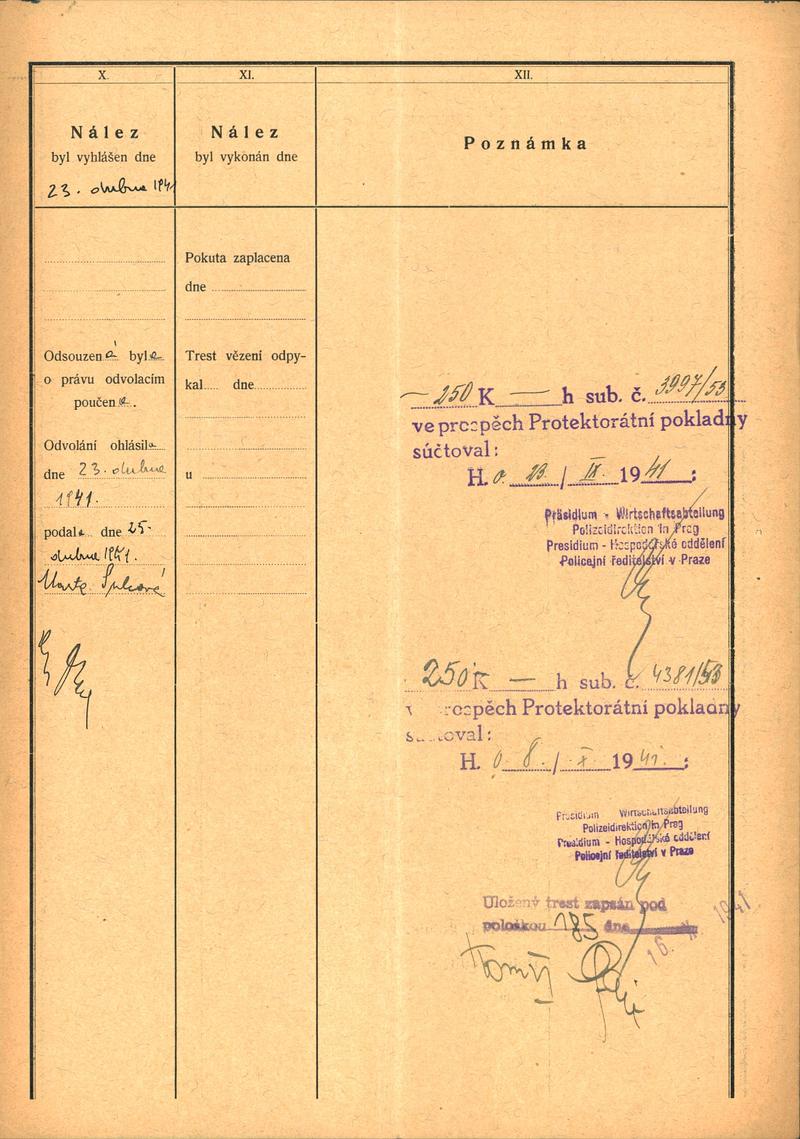 X.
Nález
byl vyhlášen dne
23. dubna 1941
Odsouzená byla
o právu odvolacím
poučena.
Odvolání ohlásila
dne 23. dubna
1941.
podala dne 25.
dubna 1941.
XI.
Nález
byl vykonán dne
Pokuta zaplacena
dne
Trest vězení odpy-
kal dne
u
XII.
Poznámka
— 250 K — h sub. č. 3997/53
ve prospěch Protektorátní pokladny
súčtoval:
H. o. 23. / IX. 1941 :
Präsidium - Wirtschaftsabteilung
Polizeidirektion in Prag
Presidium - Hospodářské oddělení
Policejní ředitelství v Praze
250 K — h sub. č. 4381/53
v prospěch Protektorátní pokladny
súčtoval:
H. o. 8. / X. 1941. :
Präsidium Wirtschaftsabteilung
Polizeidirektion in Prag
Presidium - Hospodářské oddělení
Policejní ředitelství v Praze
Uložený trest zapsán pod
položkou 185 dne
16. 1941